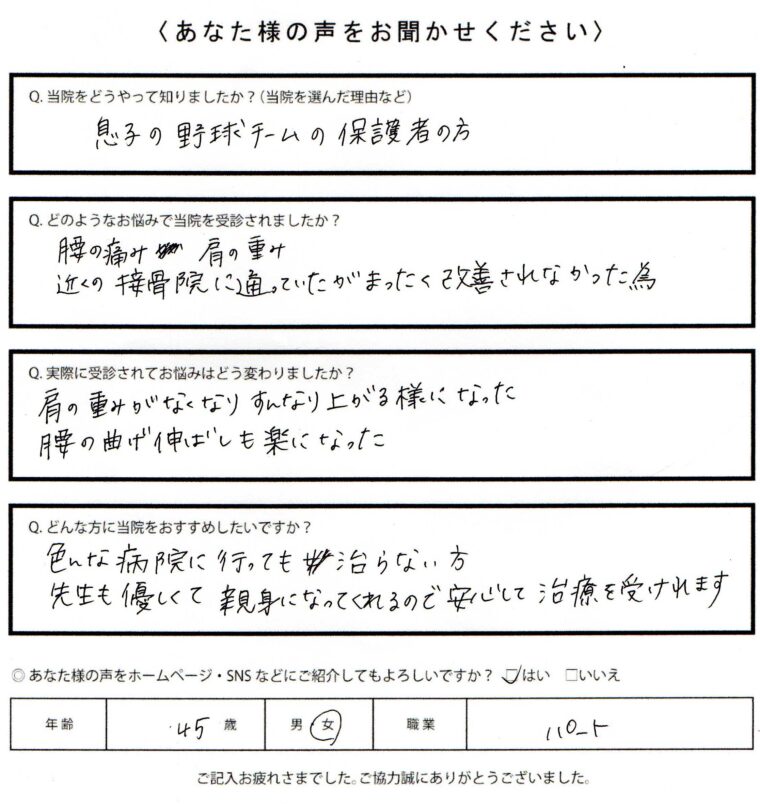 〈あなた様の声をお聞かせください〉
Q. 当院をどうやって知りましたか？（当院を選んだ理由など）
息子の野球チームの保護者の方
Q. どのようなお悩みで当院を受診されましたか？
腰の痛み 肩の重み
近くの接骨院に通っていたがまったく改善されなかった為
Q. 実際に受診されてお悩みはどう変わりましたか？
肩の重みがなくなりすんなり上がる様になった
腰の曲げ伸ばしも楽になった
Q. どんな方に当院をおすすめしたいですか？
色んな病院に行っても治らない方
先生も優しくて親身になってくれるので安心して治療を受けれます
◎あなた様の声をホームページ・SNSなどにご紹介してもよろしいですか？ ☑はい □いいえ
年齢 45 歳 男 女 職業 パート
ご記入お疲れさまでした。ご協力誠にありがとうございました。